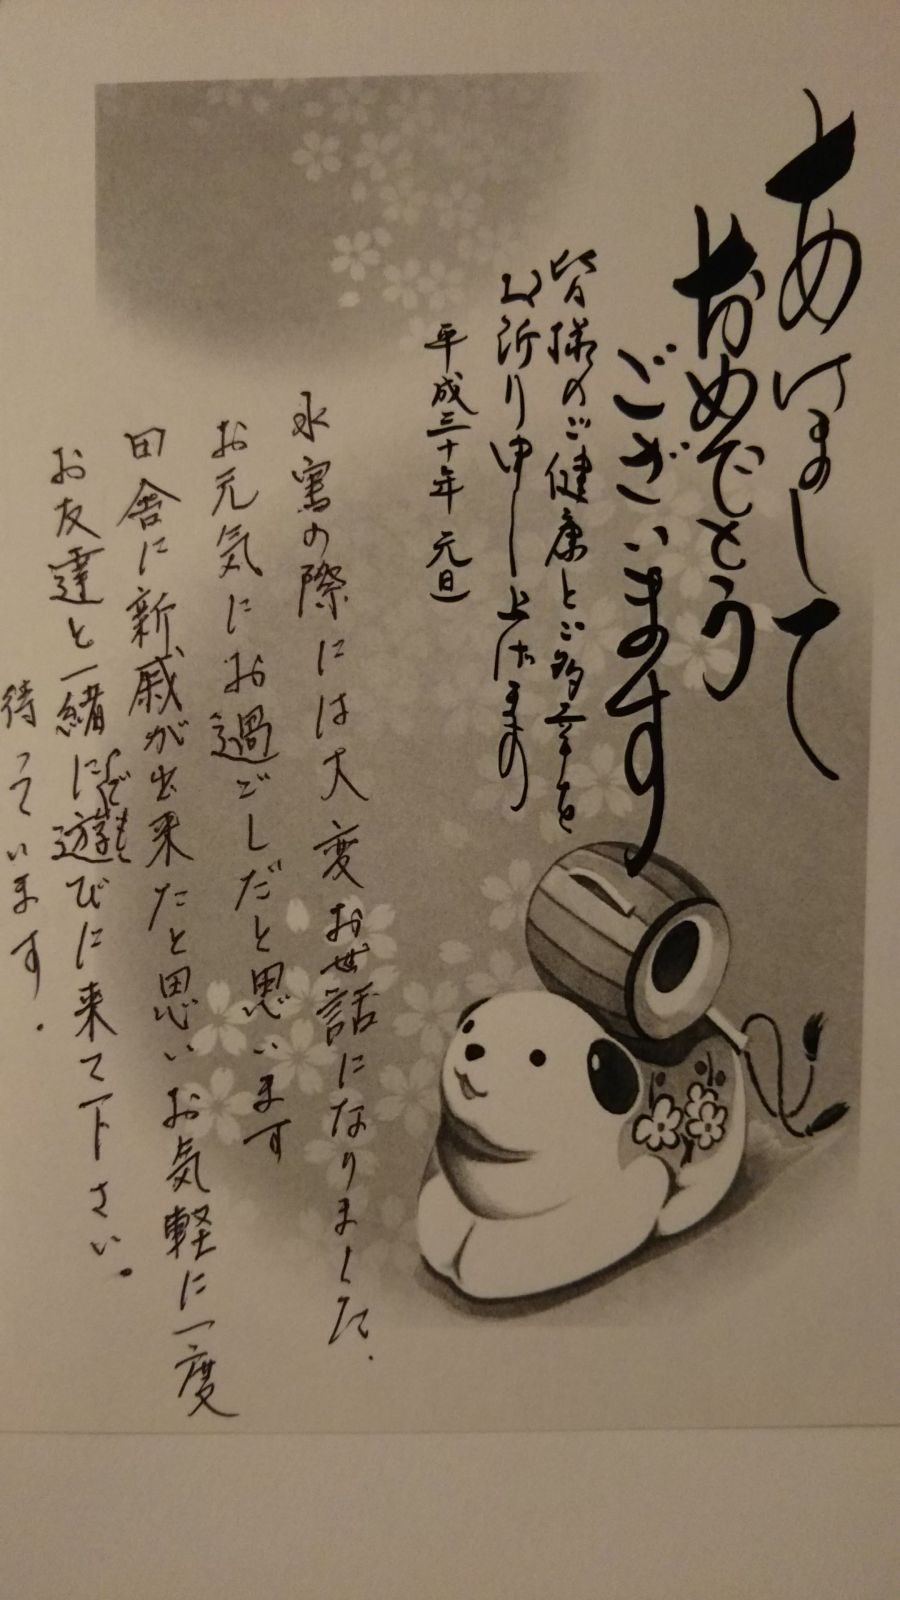 あけまして
おめでとう
ございます
皆様のご健康とご多幸を
お祈り申し上げます
平成三十年 元旦
の際には大変お世話になりました.
お元気にお過ごしだと思います
田舎に新戚が出来たと思いお気軽に一度
お友達と一緒に遊びに来て下さい.
待っています.